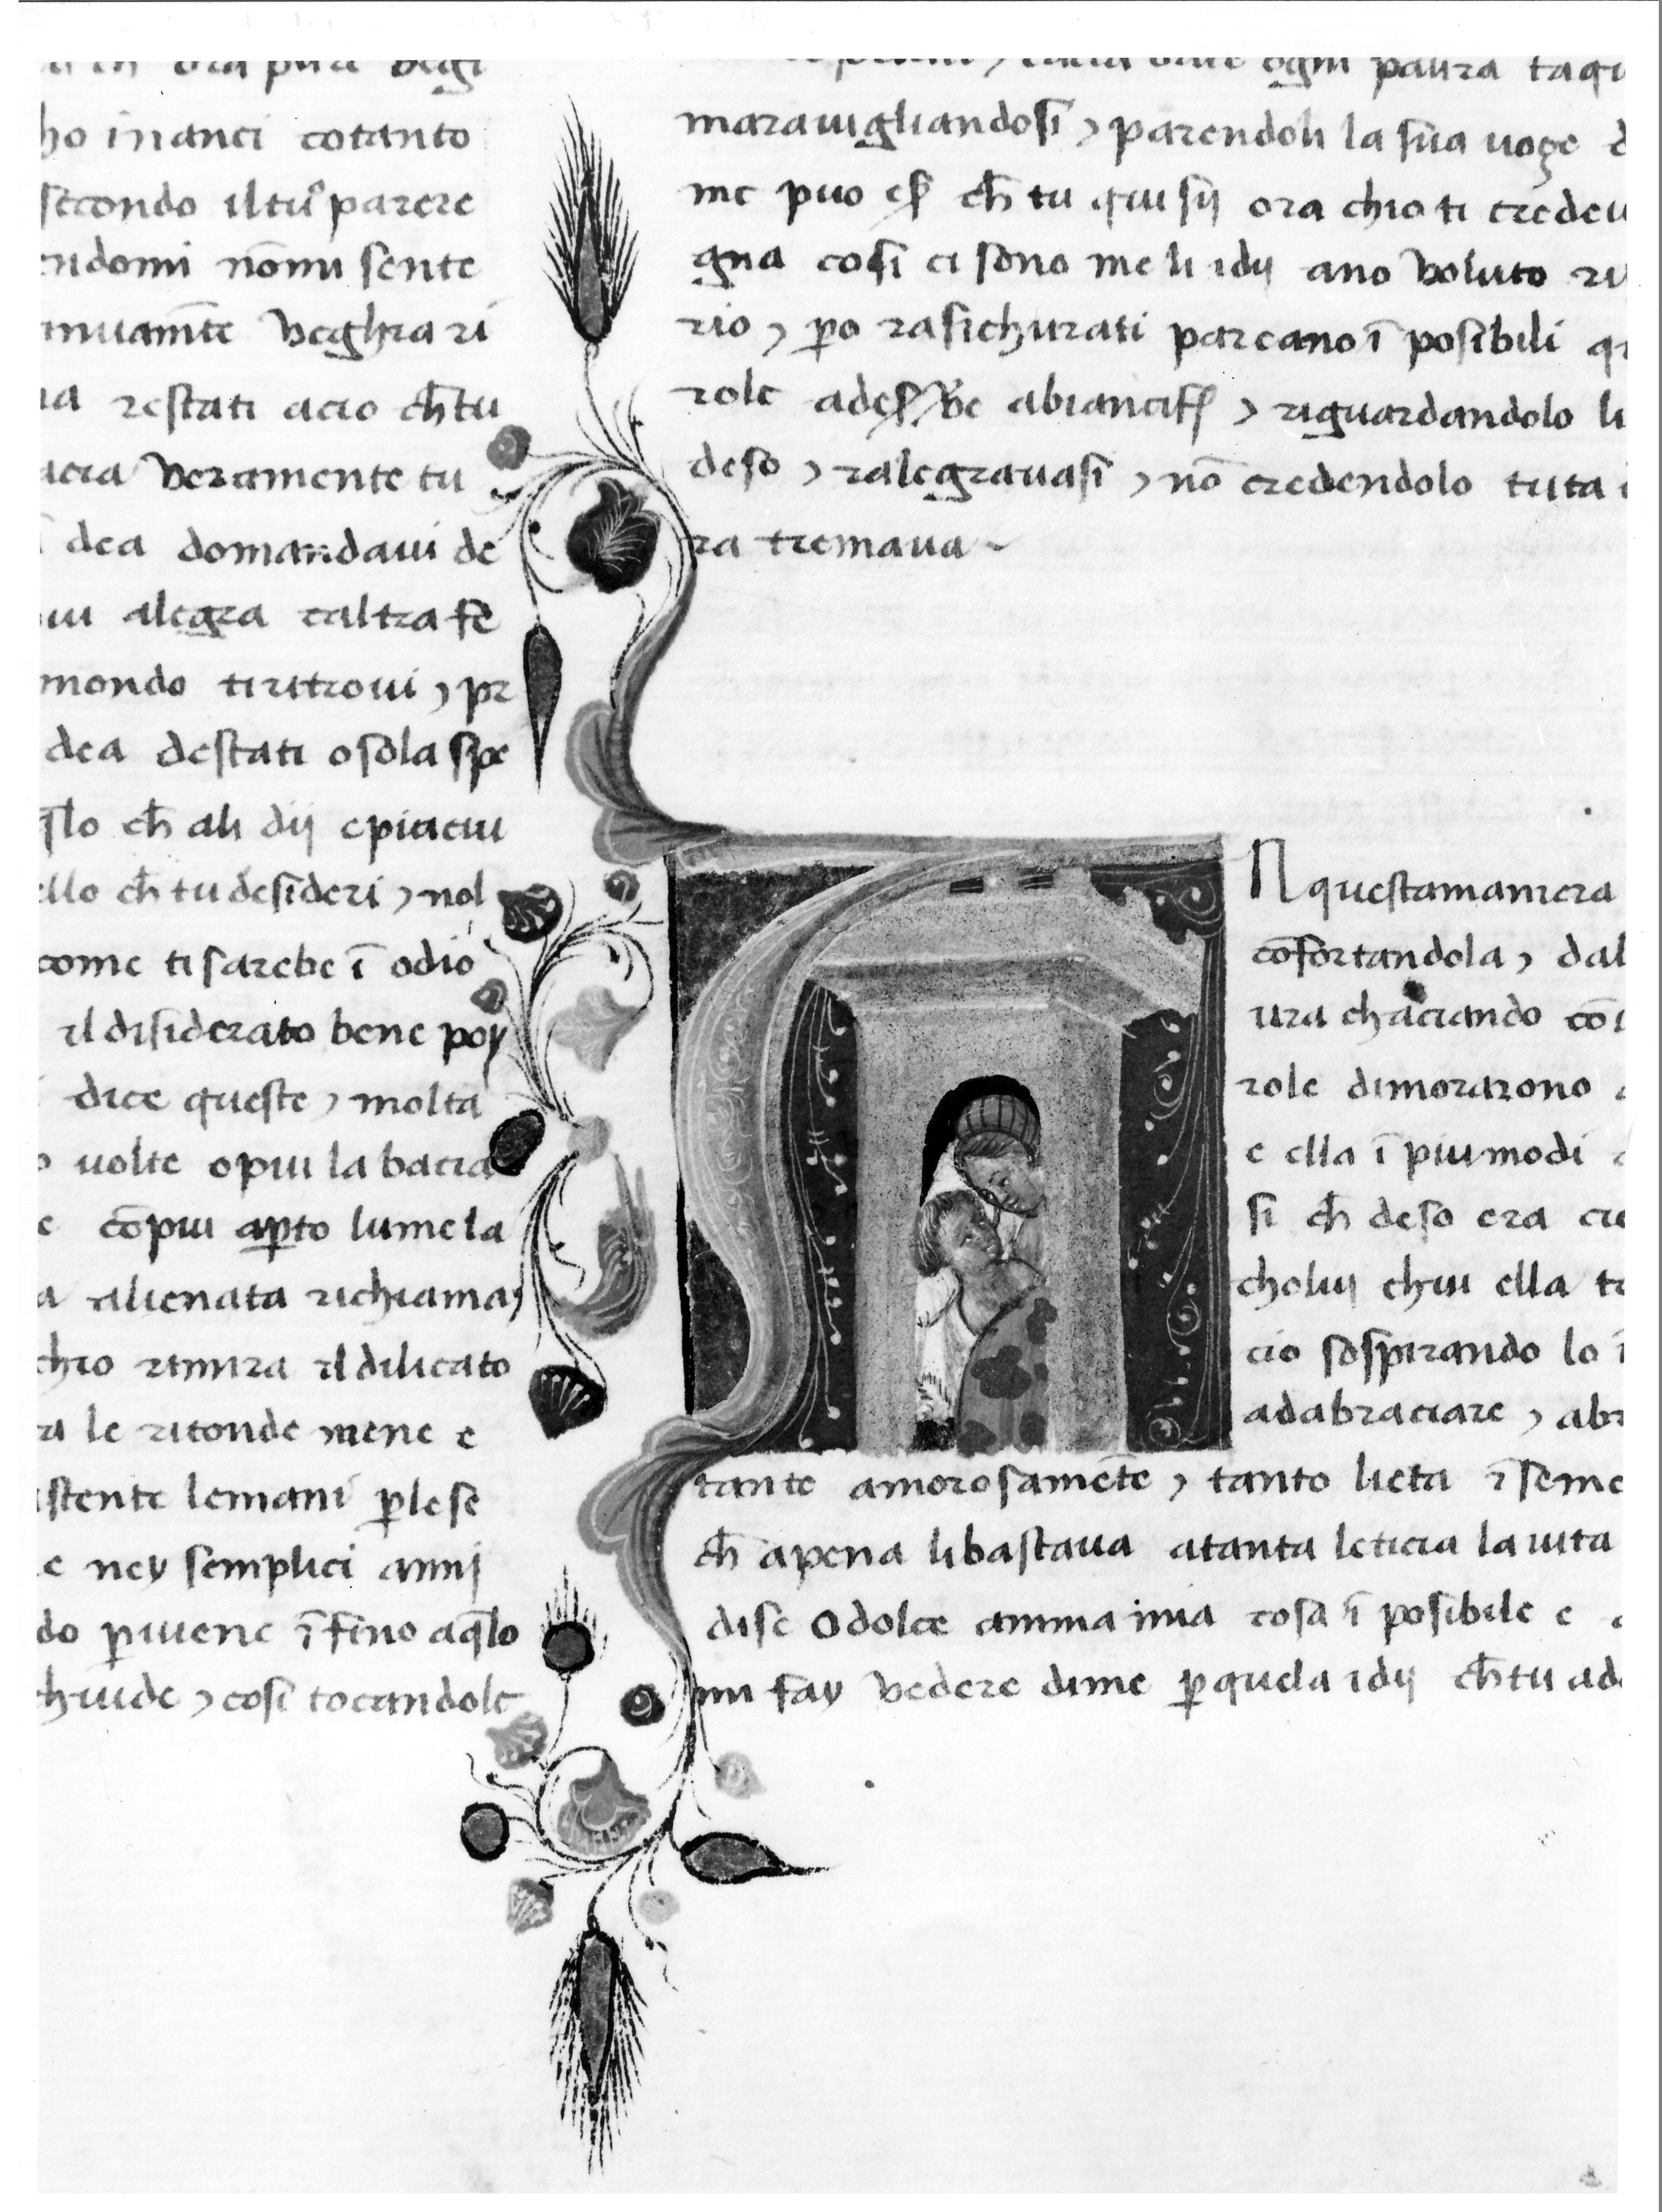 ora pura
ho inanci cotanto
secondo il tuo parere
endomi nō mi sente
nuamēte veghiari
na restati acio ch̄ tu
acia veramente tu
dea domandavi de
piu alegra caltra fe
mondo ti ritrovi ⁊ pr
dea destati o sola spe
q̄lo ch̄ ali dij e piaciu
ello ch̄ tu desideri ⁊ nol
come ti sarebe ī odio
il disiderato bene poy
dice queste ⁊ molta
o uolte o piu la bacia
e cō piu ap̱to lume la
a alienata richiama
chio rimira il dilicato
ra le ritonde mene e
istente le mani p̱ le se
e ney semplici anni
do p̱ uiene ī fino a q̄lo
chiude ⁊ cosi tocandole
ogni paura
marauigliandosi ⁊ parendoli la sua uoge d
me puo eſſ ch̄ tu qui sij ora chio ti credeu
gna cosi ci sono me li idij ano voluto ri
rio ⁊ p̱o rasichurati pareano ī posibili q
role adeſſ be a biancif ⁊ riguardandolo li
deso ⁊ ralegrauasi ⁊ nō credendolo tuta
ra tremaua ~
N questa maniera
cōfortandola ⁊ dal
ura chaciando cō
role dimorarono
e ella ī piu modi
si ch̄ deso era
choluij chui ella te
cio sospirando lo
ad abraciare ⁊ abr
tante amorosamēte ⁊ tanto lieta īseme
ch̄ apena li bastaua a tanta leticia la uita
dise O dolce anima mia cosa ī posibile e
mi fay vedere dime p̱ quela idij ch̄ tu ado